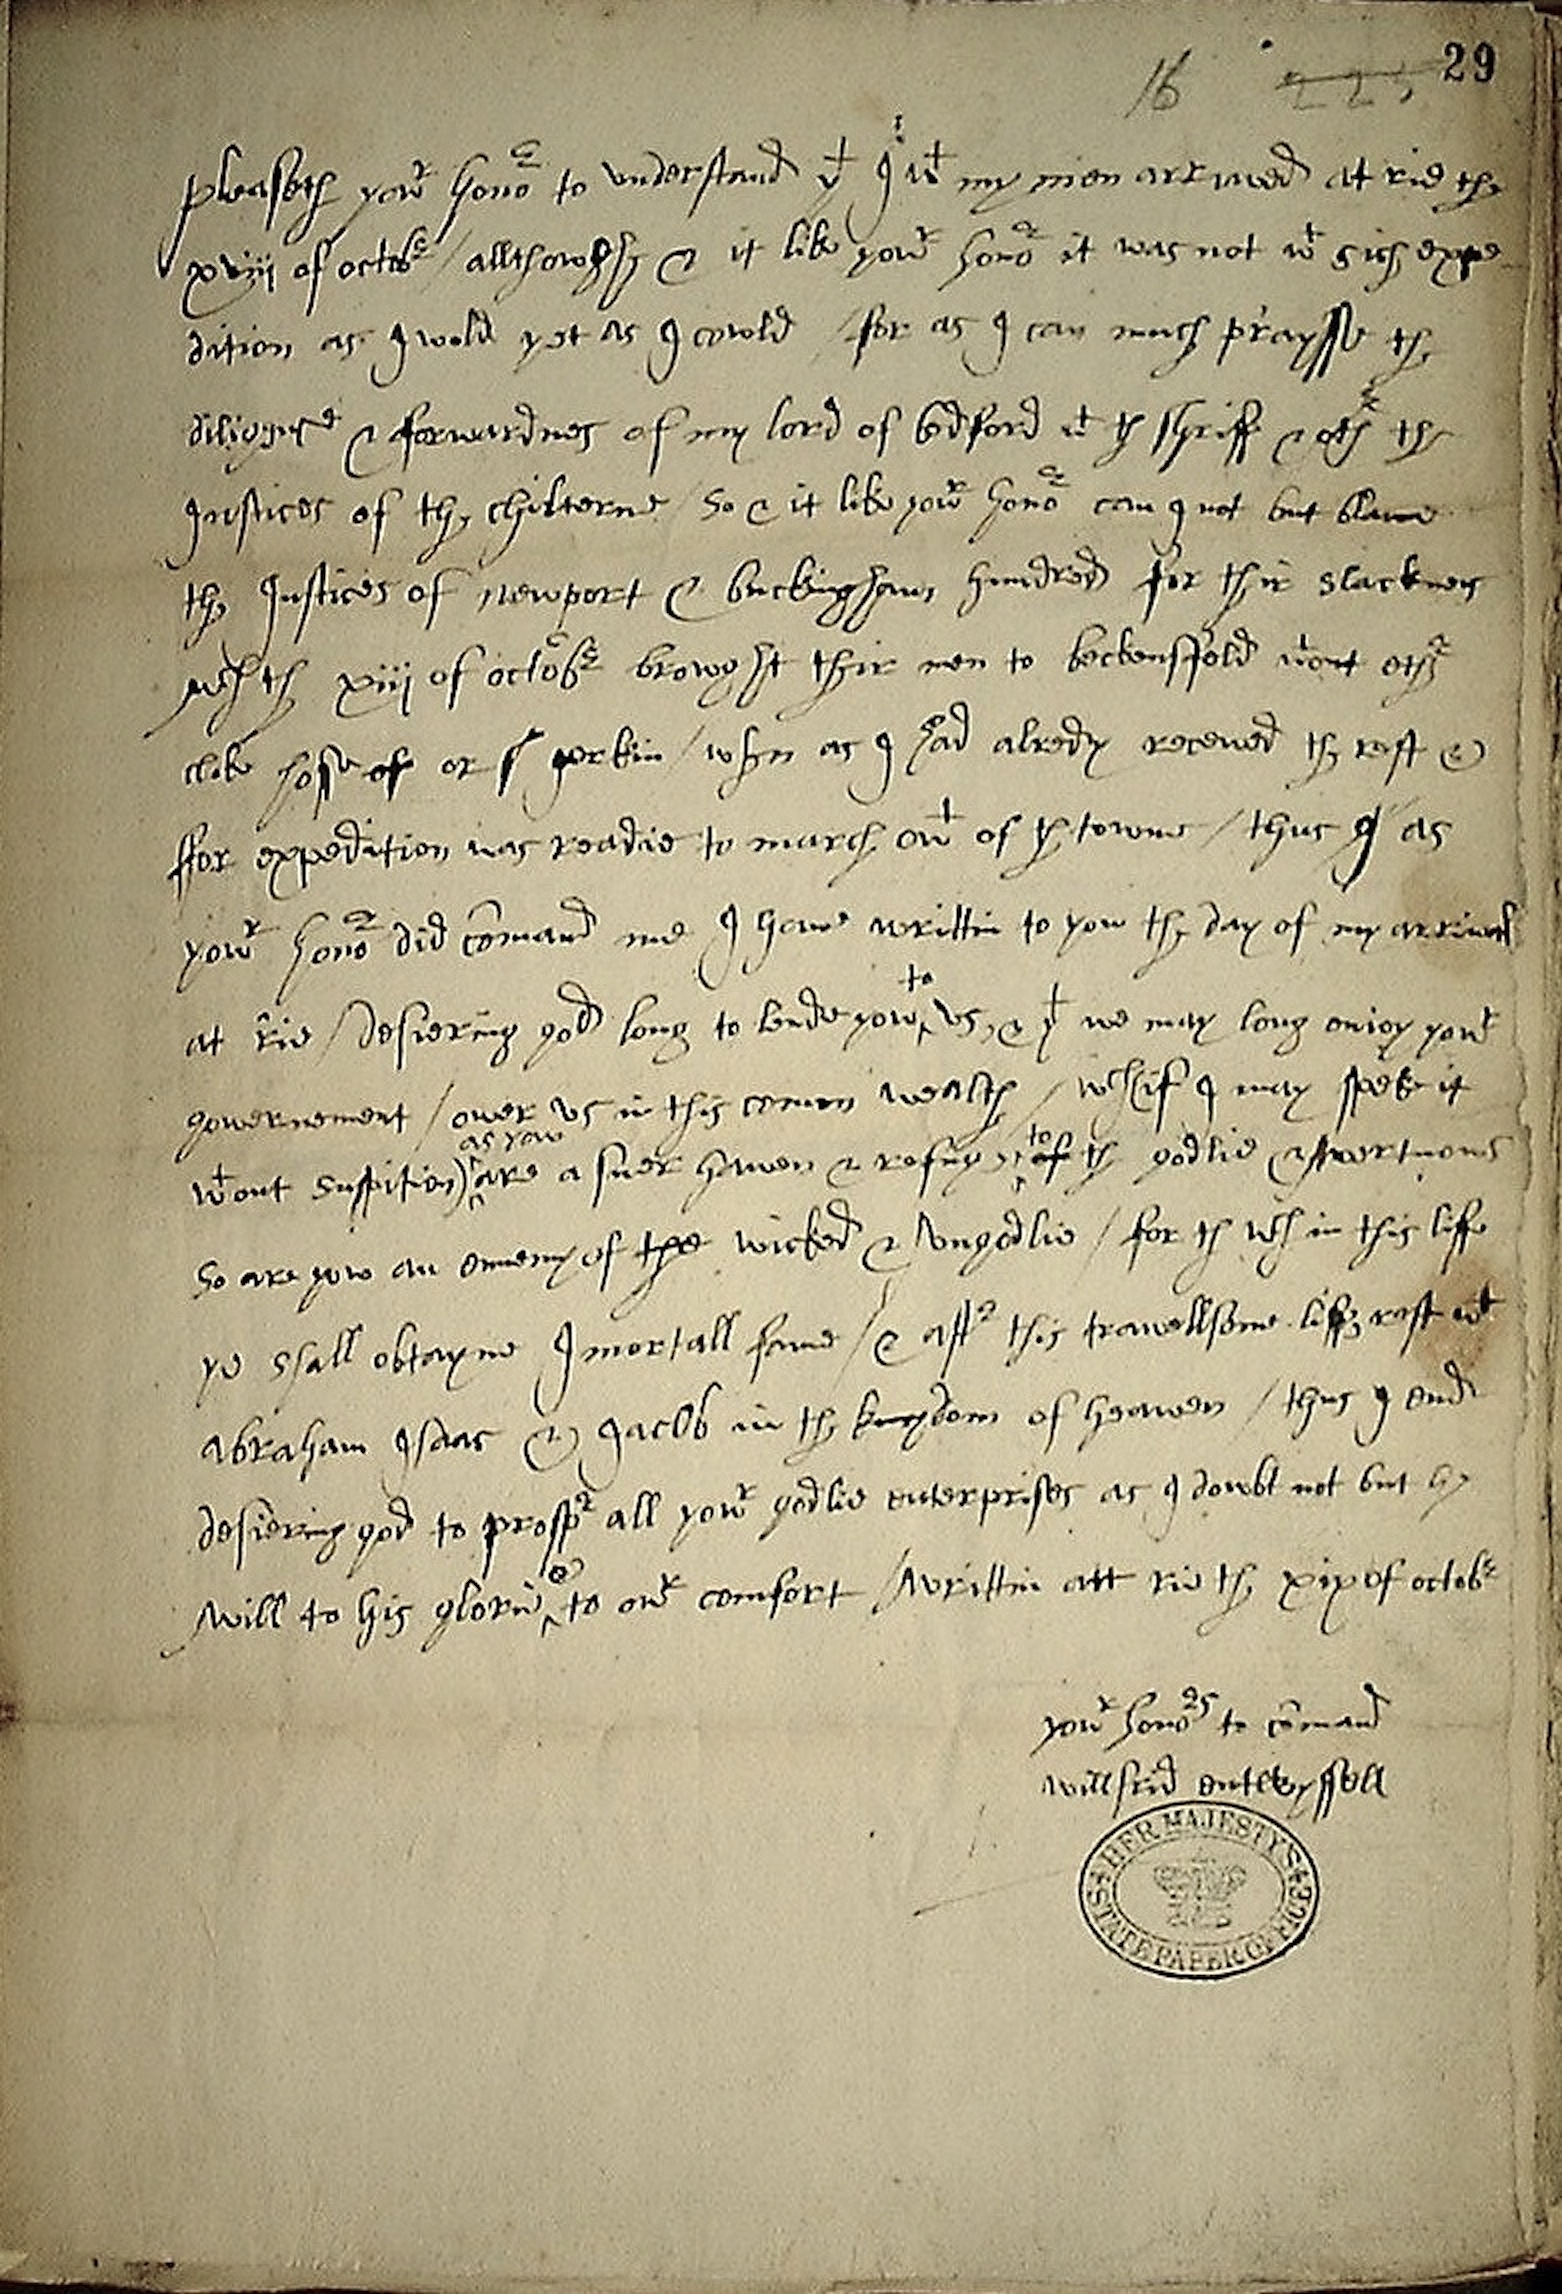 16 29
pleaseth yowr honor to vnderstand yt I wt my men arrived at rie the
xviij of octobr / allthowghe & it like yowr honor it was not wt sich expe
dition as I wold yet as I cowld / for as I can much praysse the
diligence & forwardnes of my lord of bedford wt th shriff & othr the
Justices of the chilterne / so & it like yowr honor can I not but blame
the Justices of newport & buckingham hundred for thir slacknes
wch th xiij of octobr browght thir men to beckensfeld wtout othr
cloke hosse or jerkin / when as I had alredy receved the rest &
ffor expedition was readie to march owt of th towne / thus I as
yowr honor did comand me I have writtin to yow the day of my arrivall
at rie / desiering god long to lende yow to vs, & yt we may long enioy yowr
governement / over vs in this comen wealth / wch (if I may speke it
wtout suspition) as yow are a suer haven & refuge to of th godlie & vertuous
so are yow an ennemy of the wicked & vngodlie / for th wch in this liffe
ye shall obtayne Imortall fame / & aftr this travellsome liffe rest wt
abraham Isaac & Jacob in the kingdom of heaven / thus I end
desiering god to prosper all yowr godlie enterprises as I dowbt not but he
will to his glorie & to owr comfort / writtin att rie the xix of octobr
yowr honors to comand
willfrid entwyssell
HER MAJESTY'S STATE PAPER OFFICE